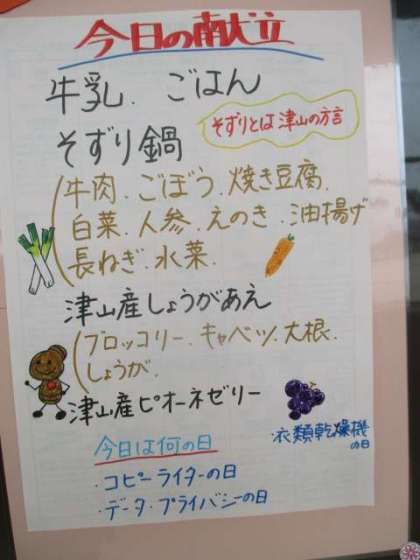 今日の献立
牛乳．ごはん
そずり鍋
そずりとは津山の方言
牛肉．ごぼう．焼き豆腐．
白菜．人参．えのき．油揚げ
長ねぎ．水菜．
津山産しょうがあえ
ブロッコリー．キャベツ．大根．
しょうが．
津山産ピオーネゼリー
今日は何の日
衣類乾燥機
の日
・コピーライターの日
・データ・プライバシーの日